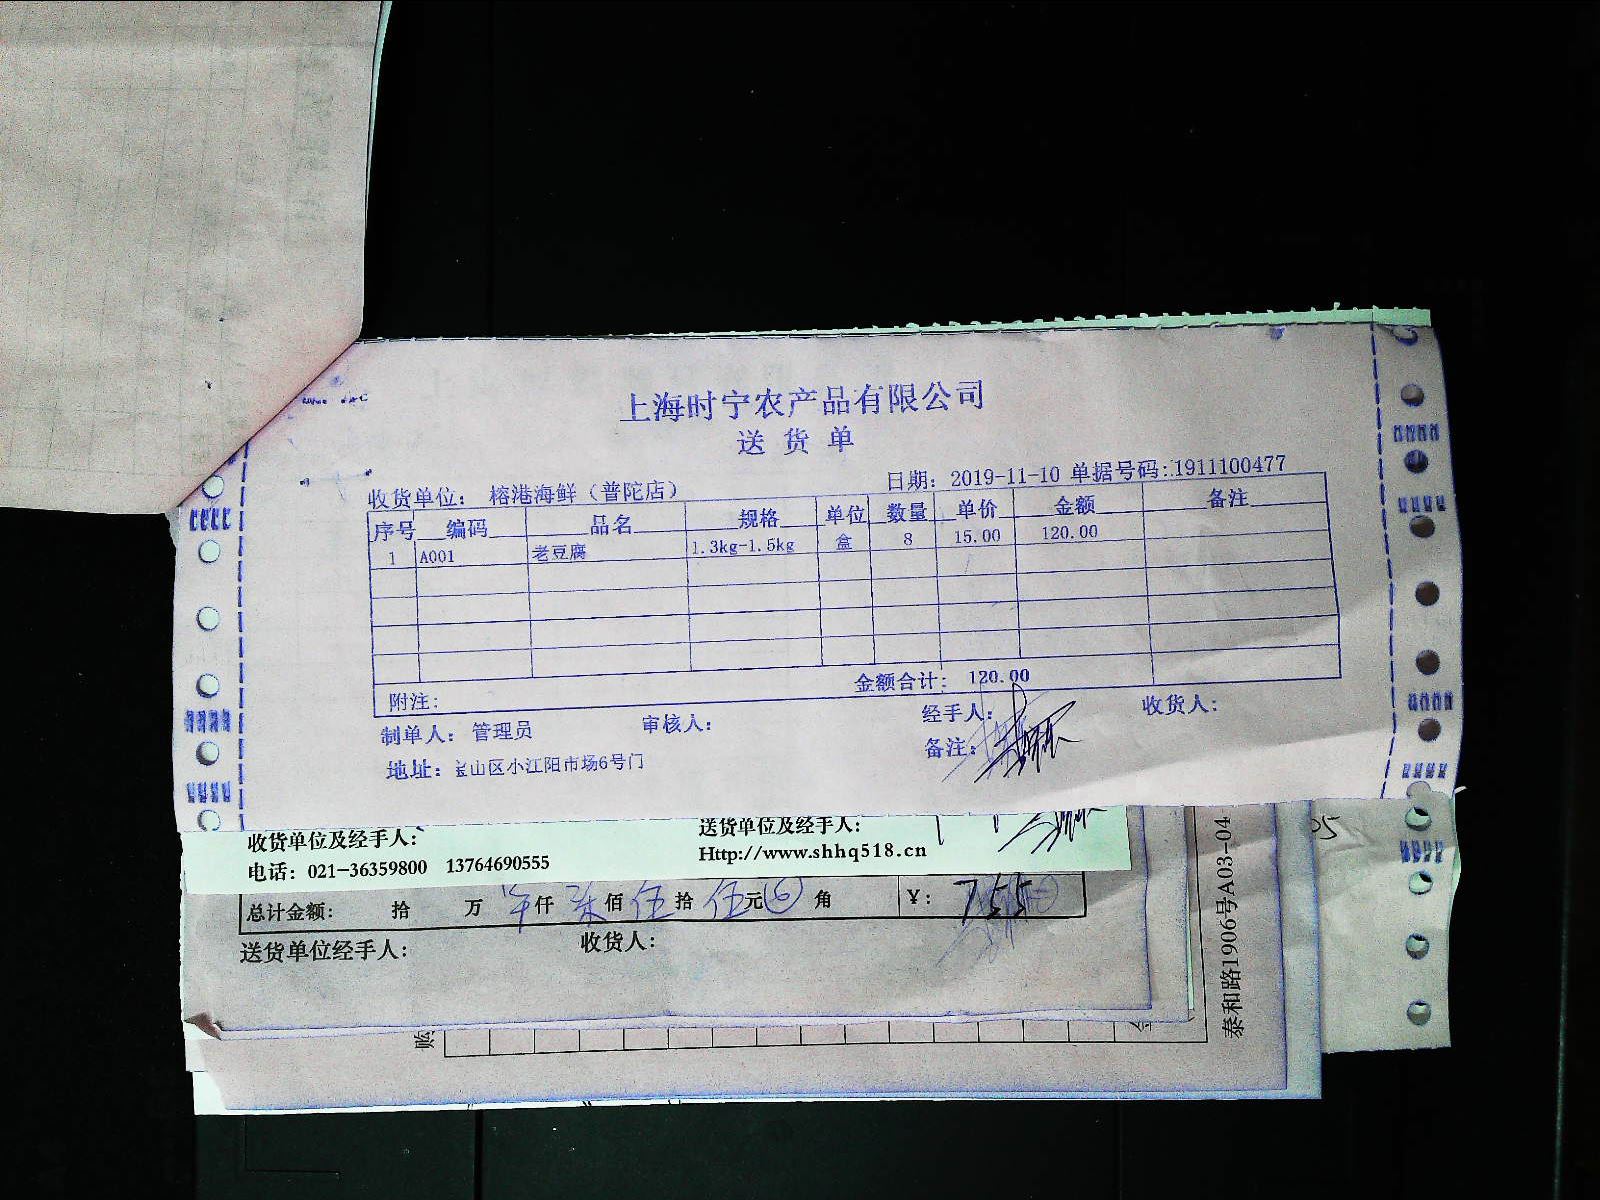 上海时宁农产品有限公司
送货单
收货单位: 榕港海鲜(普陀店) 日期: 2019-11-10 单据号码:1911100477
序号 编码 品名 规格 单位 数量 单价 金额 备注
1 A001 老豆腐 1.3kg-1.5kg 盒 8 15.00 120.00
金额合计: 120.00
附注:
制单人: 管理员 审核人: 经手人: 收货人:
备注:
地址: 宝山区小江阳市场6号门
收货单位及经手人: 送货单位及经手人:
电话: 021-36359800 13764690555 Http://www.shhq518.cn
总计金额: 拾 万 仟 柒佰 伍拾 伍元 角 ¥: 755
送货单位经手人: 收货人:
泰和路1906号A03-04
05
购